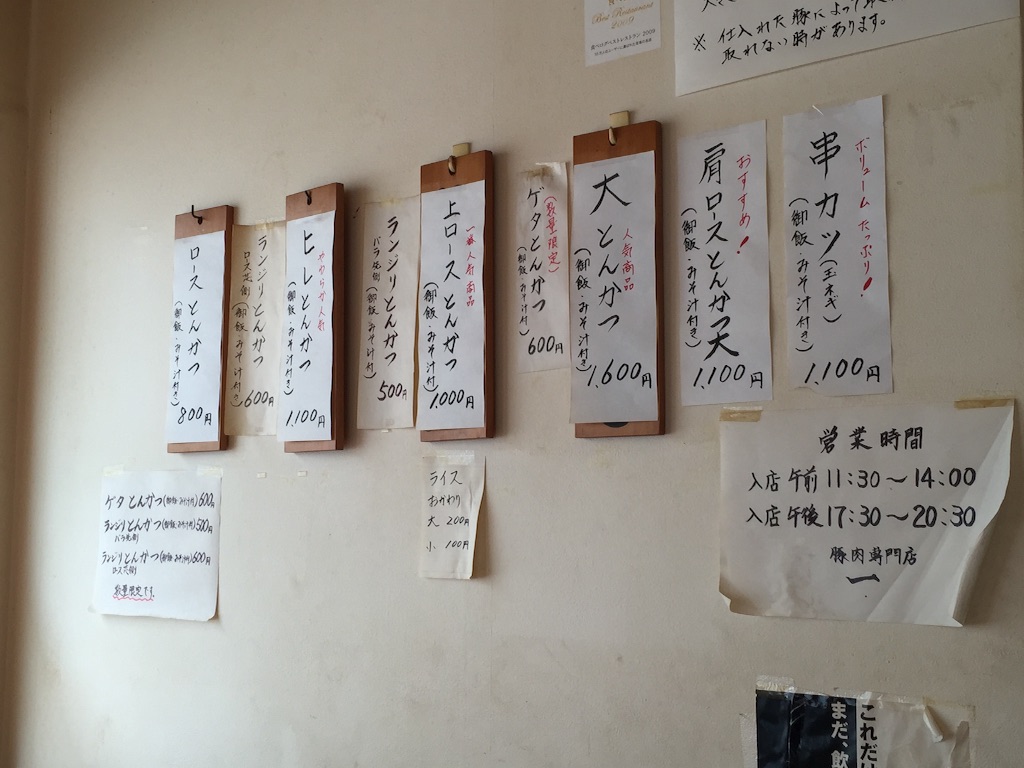 Best Restaurant
2009
※ 仕入れた豚によって
取れない時があります。
串カツ(玉ネギ)
ボリュームたっぷり!
(御飯・みそ汁付き)
1,100円
肩ロースとんかつ大
おすすめ!
(御飯・みそ汁付き)
1,100円
大とんかつ
人気商品
(御飯・みそ汁付き)
1,600円
ゲタとんかつ
(数量限定)
(御飯・みそ汁付)
600円
上ロースとんかつ
一番人気商品
(御飯・みそ汁付)
1,000円
ランジリとんかつ
バラ先側
(御飯・みそ汁付)
500円
ヒレとんかつ
やわらか人気
(御飯・みそ汁付き)
1,100円
ランジリとんかつ
ロース先側
(御飯・みそ汁付き)
600円
ロースとんかつ
(御飯・みそ汁付き)
800円
ゲタとんかつ(御飯・みそ汁付)600円
ランジリとんかつ(御飯・みそ汁付)500円
バラ先側
ランジリとんかつ(御飯・みそ汁付)600円
ロース先側
数量限定です。
ライス
おかわり
大 200円
小 100円
営業時間
入店 午前 11:30~14:00
入店 午後 17:30~20:30
豚肉専門店
一
これだけ
まだ、飲